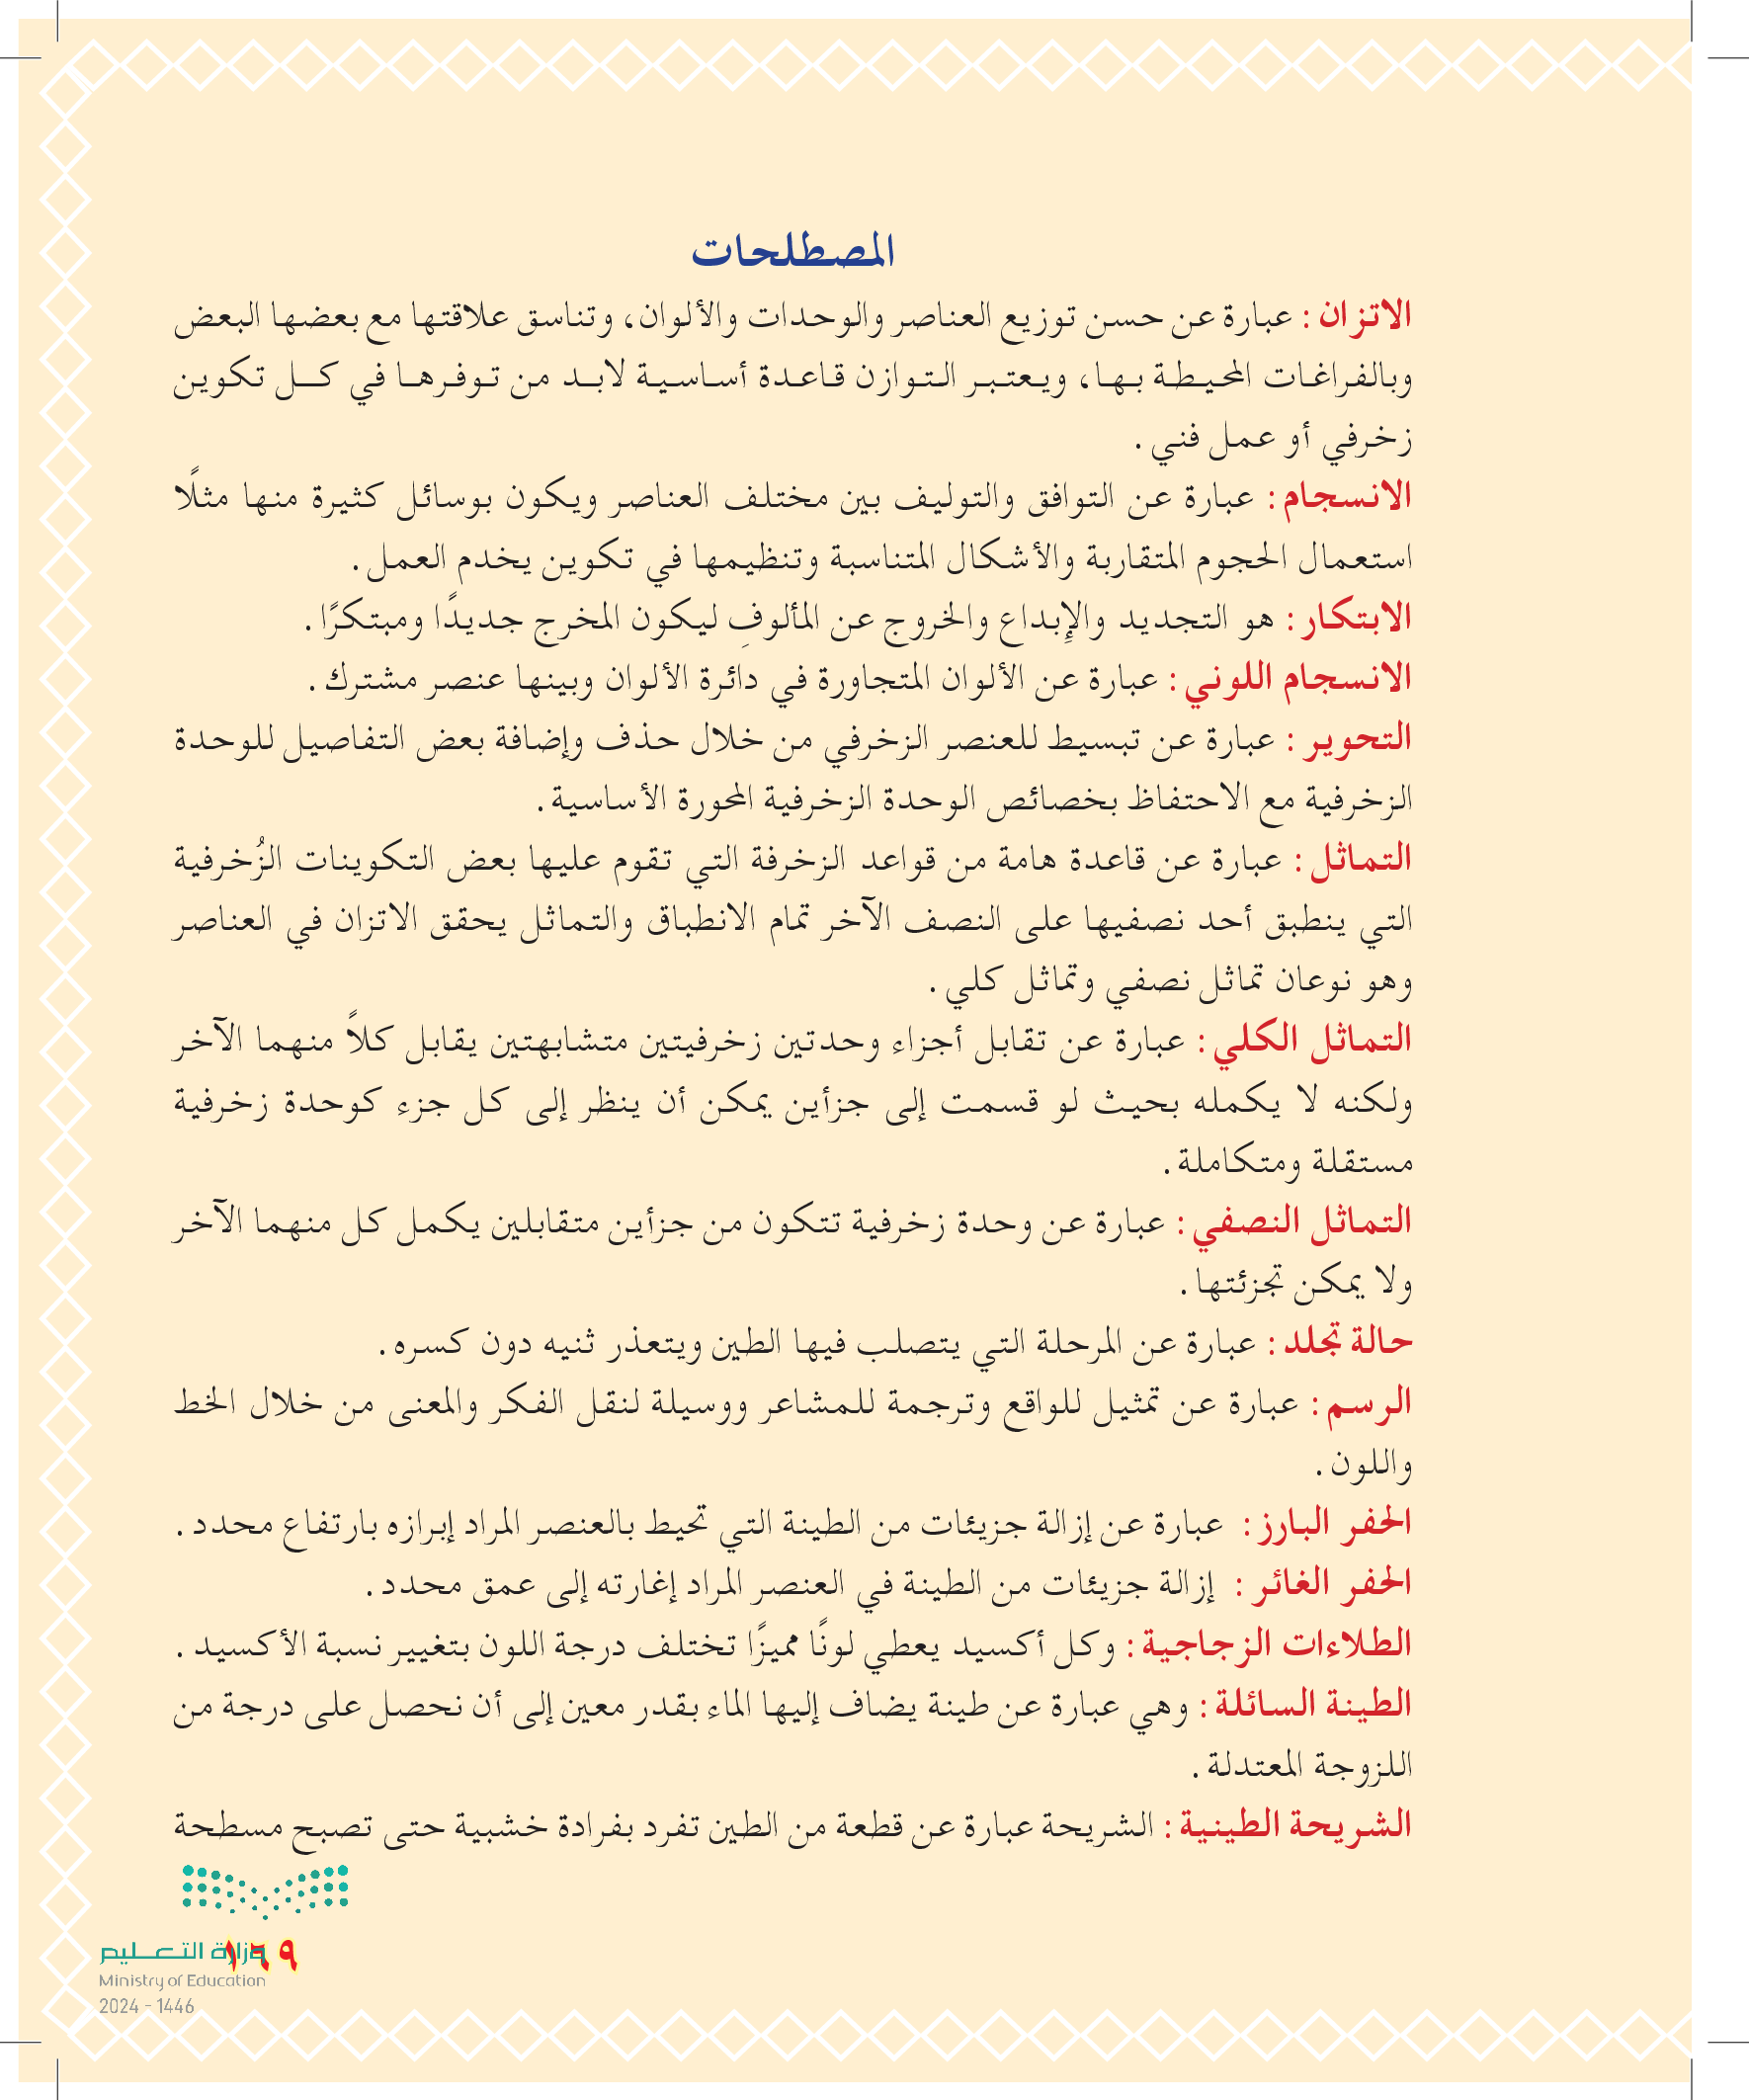 المصطلحات
الاتزان : عبارة عن حسن توزيع العناصر والوحدات والألوان، وتناسق علاقتها مع بعضها البعض
وبالفراغات المحيطة بها، ويعتبر التوازن قاعدة أساسية لابد من توفرها في كل تكوين
زخرفي أو عمل فني .
الانسجام : عبارة عن التوافق والتوليف بين مختلف العناصر ويكون بوسائل كثيرة منها مثلًا
استعمال الحجوم المتقاربة والأشكال المتناسبة وتنظيمها في تكوين يخدم العمل .
الابتكار : هو التجديد والإِبداع والخروج عن المألوفِ ليكون المخرج جديدًا ومبتكرًا .
الانسجام اللوني : عبارة عن الألوان المتجاورة في دائرة الألوان وبينها عنصر مشترك .
التحوير : عبارة عن تبسيط للعنصر الزخرفي من خلال حذف وإضافة بعض التفاصيل للوحدة
الزخرفية مع الاحتفاظ بخصائص الوحدة الزخرفية المحورة الأساسية .
التماثل : عبارة عن قاعدة هامة من قواعد الزخرفة التي تقوم عليها بعض التكوينات الزُخرفية
التي ينطبق أحد نصفيها على النصف الآخر تمام الانطباق والتماثل يحقق الاتزان في العناصر
وهو نوعان تماثل نصفي وتماثل كلي .
التماثل الكلي : عبارة عن تقابل أجزاء وحدتين زخرفيتين متشابهتين يقابل كلاً منهما الآخر
ولكنه لا يكمله بحيث لو قسمت إلى جزأين يمكن أن ينظر إلى كل جزء كوحدة زخرفية
مستقلة ومتكاملة .
التماثل النصفي : عبارة عن وحدة زخرفية تتكون من جزأين متقابلين يكمل كل منهما الآخر
ولا يمكن تجزئتها .
حالة تجلد : عبارة عن المرحلة التي يتصلب فيها الطين ويتعذر ثنيه دون كسره .
الرسم : عبارة عن تمثيل للواقع وترجمة للمشاعر ووسيلة لنقل الفكر والمعنى من خلال الخط
واللون .
الحفر البارز : عبارة عن إزالة جزيئات من الطينة التي تحيط بالعنصر المراد إبرازه بارتفاع محدد .
الحفر الغائر : إزالة جزيئات من الطينة في العنصر المراد إغارته إلى عمق محدد .
الطلاءات الزجاجية : وكل أكسيد يعطي لونًا مميزًا تختلف درجة اللون بتغيير نسبة الأكسيد .
الطينة السائلة : وهي عبارة عن طينة يضاف إليها الماء بقدر معين إلى أن نحصل على درجة من
اللزوجة المعتدلة .
الشريحة الطينية : الشريحة عبارة عن قطعة من الطين تفرد بفرادة خشبية حتى تصبح مسطحة
وزارة التعليم
١٦٩
Ministry of Education
2024 - 1446